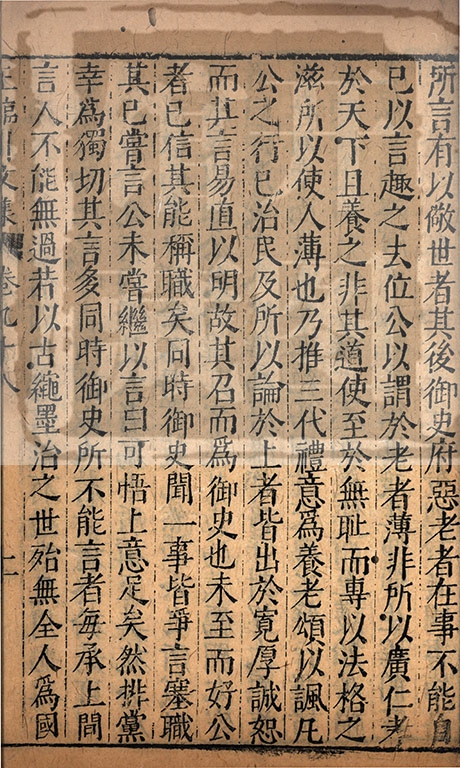 所言有以儆世者其後御史府惡老者在事不能自
已以言趣之去位公以謂於老者薄非所以廣仁孝
於天下且養之非其道使至於無耻而專以法格之
滋所以使人薄也乃推三代禮意爲養老頌以諷凡
公之行已治民及所以論於上者皆出於寬厚誠恕
而其言易直以明故其召而爲御史也未至而好公
者已信其能稱職矣同時御史聞一事皆爭言塞職
其已嘗言公未嘗繼以言曰可悟上意足矣然排黨
幸爲獨切其言多同時御史所不能言者每承上間
言人不能無過若以古繩墨治之世殆無全人爲國
王臨川文集 卷九十八 二